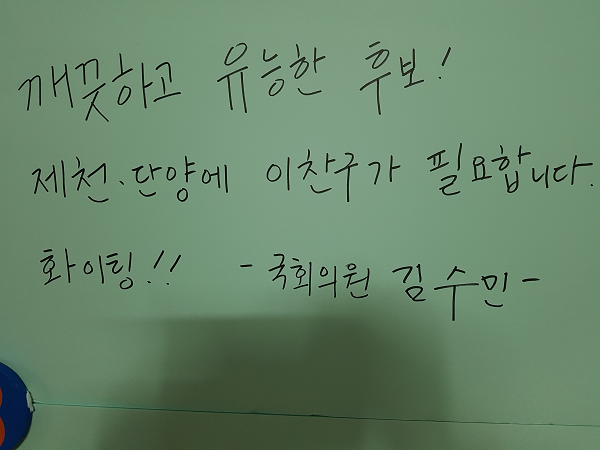 깨끗하고 유능한 후보!
제천·단양에 이찬구가 필요합니다.
화이팅!! - 국회의원 김수민 -